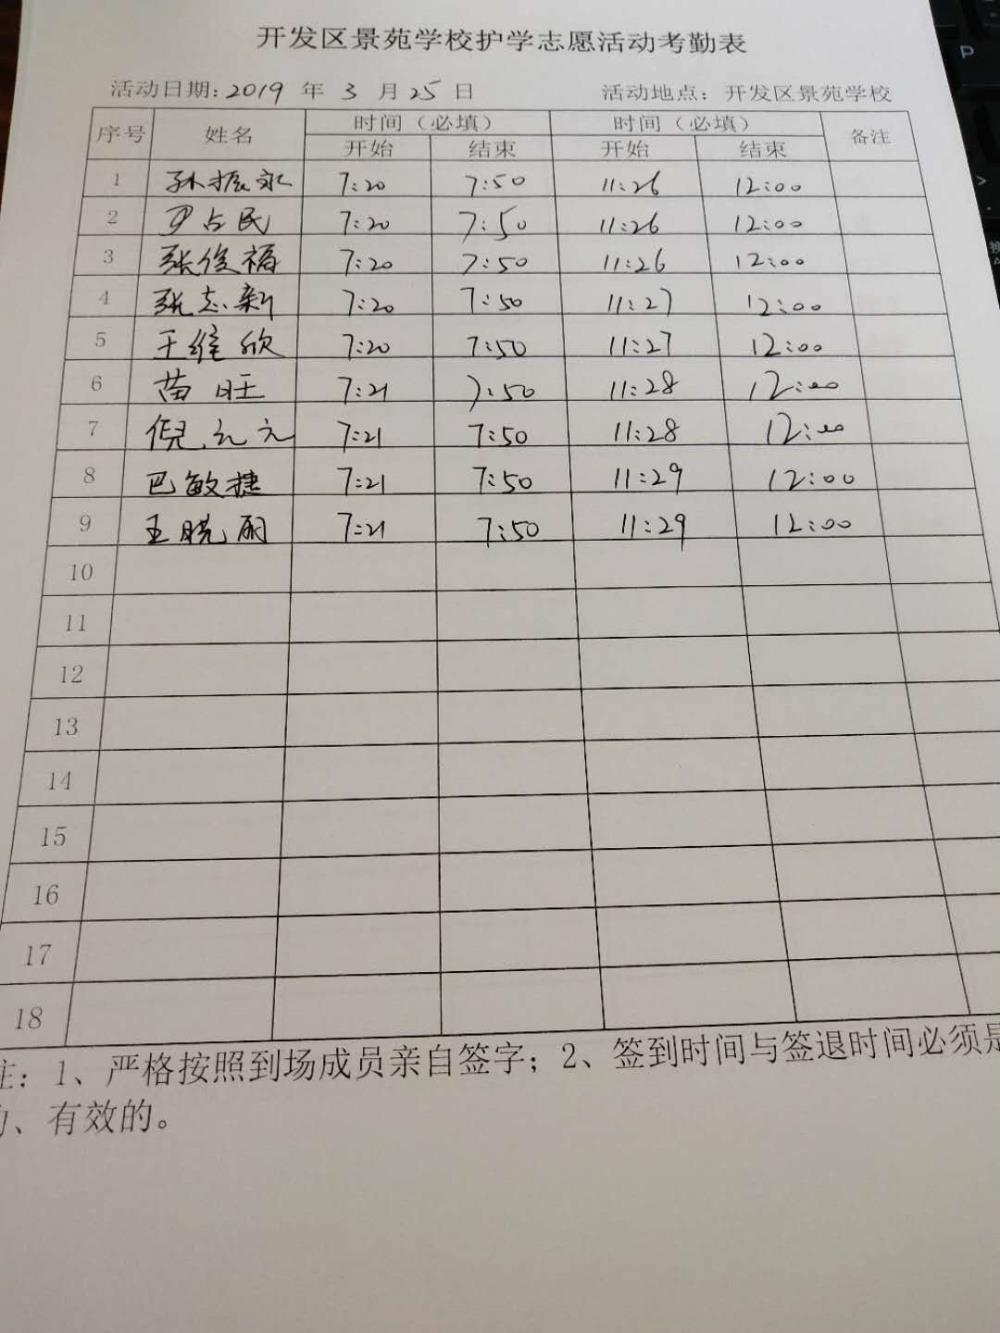 开发区景苑学校护学志愿活动考勤表
活动日期:2019 年 3 月 25 日 活动地点: 开发区景苑学校
序号 姓名 时间(必填) 时间(必填) 备注
开始 结束 开始 结束
1 孙振永 7:20 7:50 11:26 12:00
2 尹占民 7:20 7:50 11:26 12:00
3 张俊福 7:20 7:50 11:26 12:00
4 张志新 7:20 7:50 11:27 12:00
5 王维欣 7:20 7:50 11:27 12:00
6 苗旺 7:21 7:50 11:28 12:00
7 倪元元 7:21 7:50 11:28 12:00
8 巴敏捷 7:21 7:50 11:29 12:00
9 王晓丽 7:21 7:50 11:29 12:00
10
11
12
13
14
15
16
17
18
注: 1、严格按照到场成员亲自签字; 2、签到时间与签退时间必须是
、有效的。
P